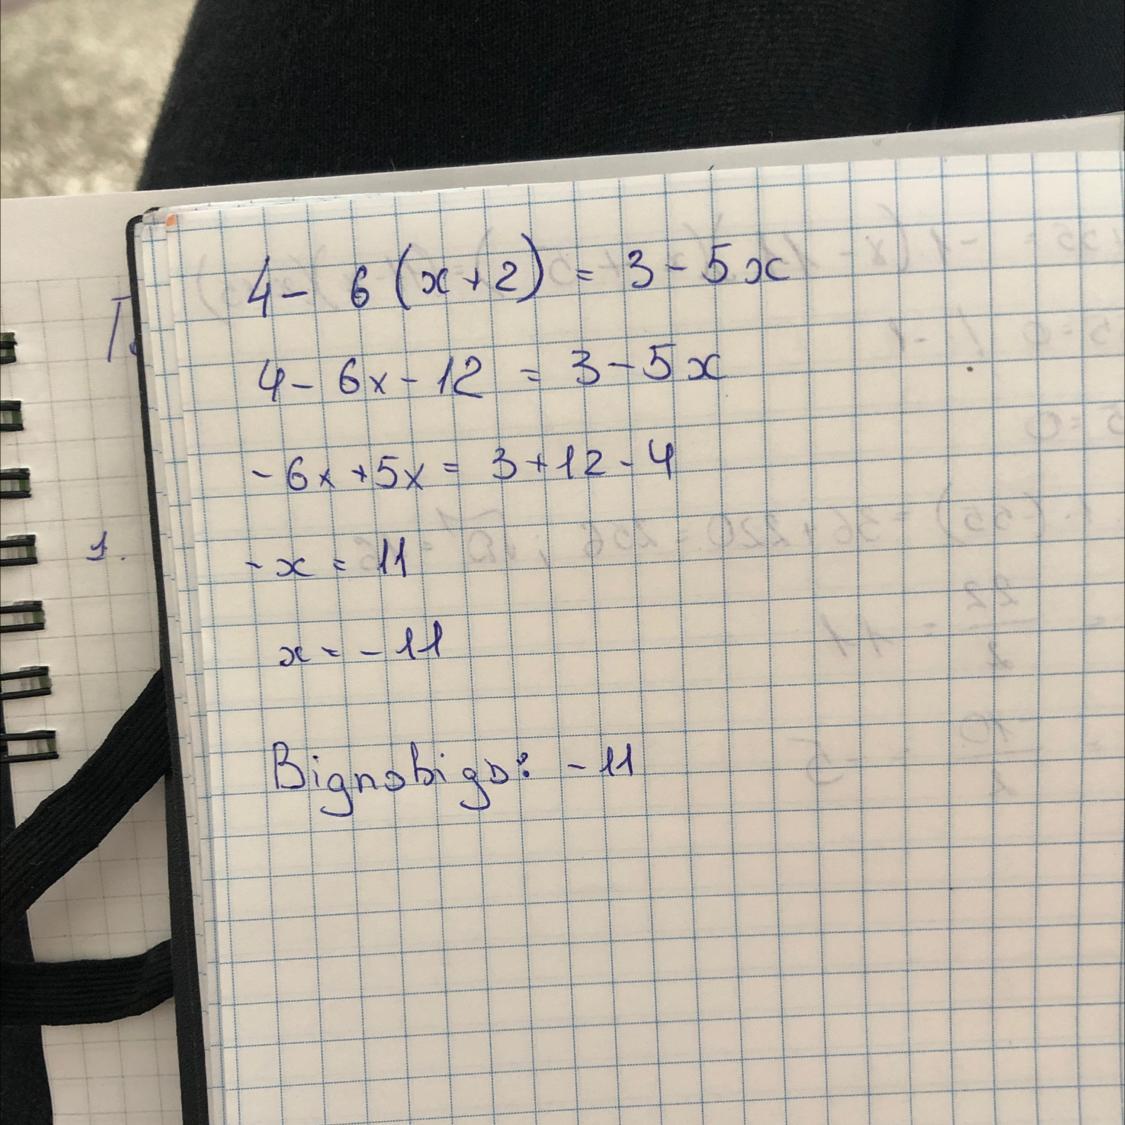 4 - 6 (x + 2) = 3 - 5x
4 - 6x - 12 = 3 - 5x
- 6x + 5x = 3 + 12 - 4
1.
- x = 11
x = - 11
Відповідь: - 11